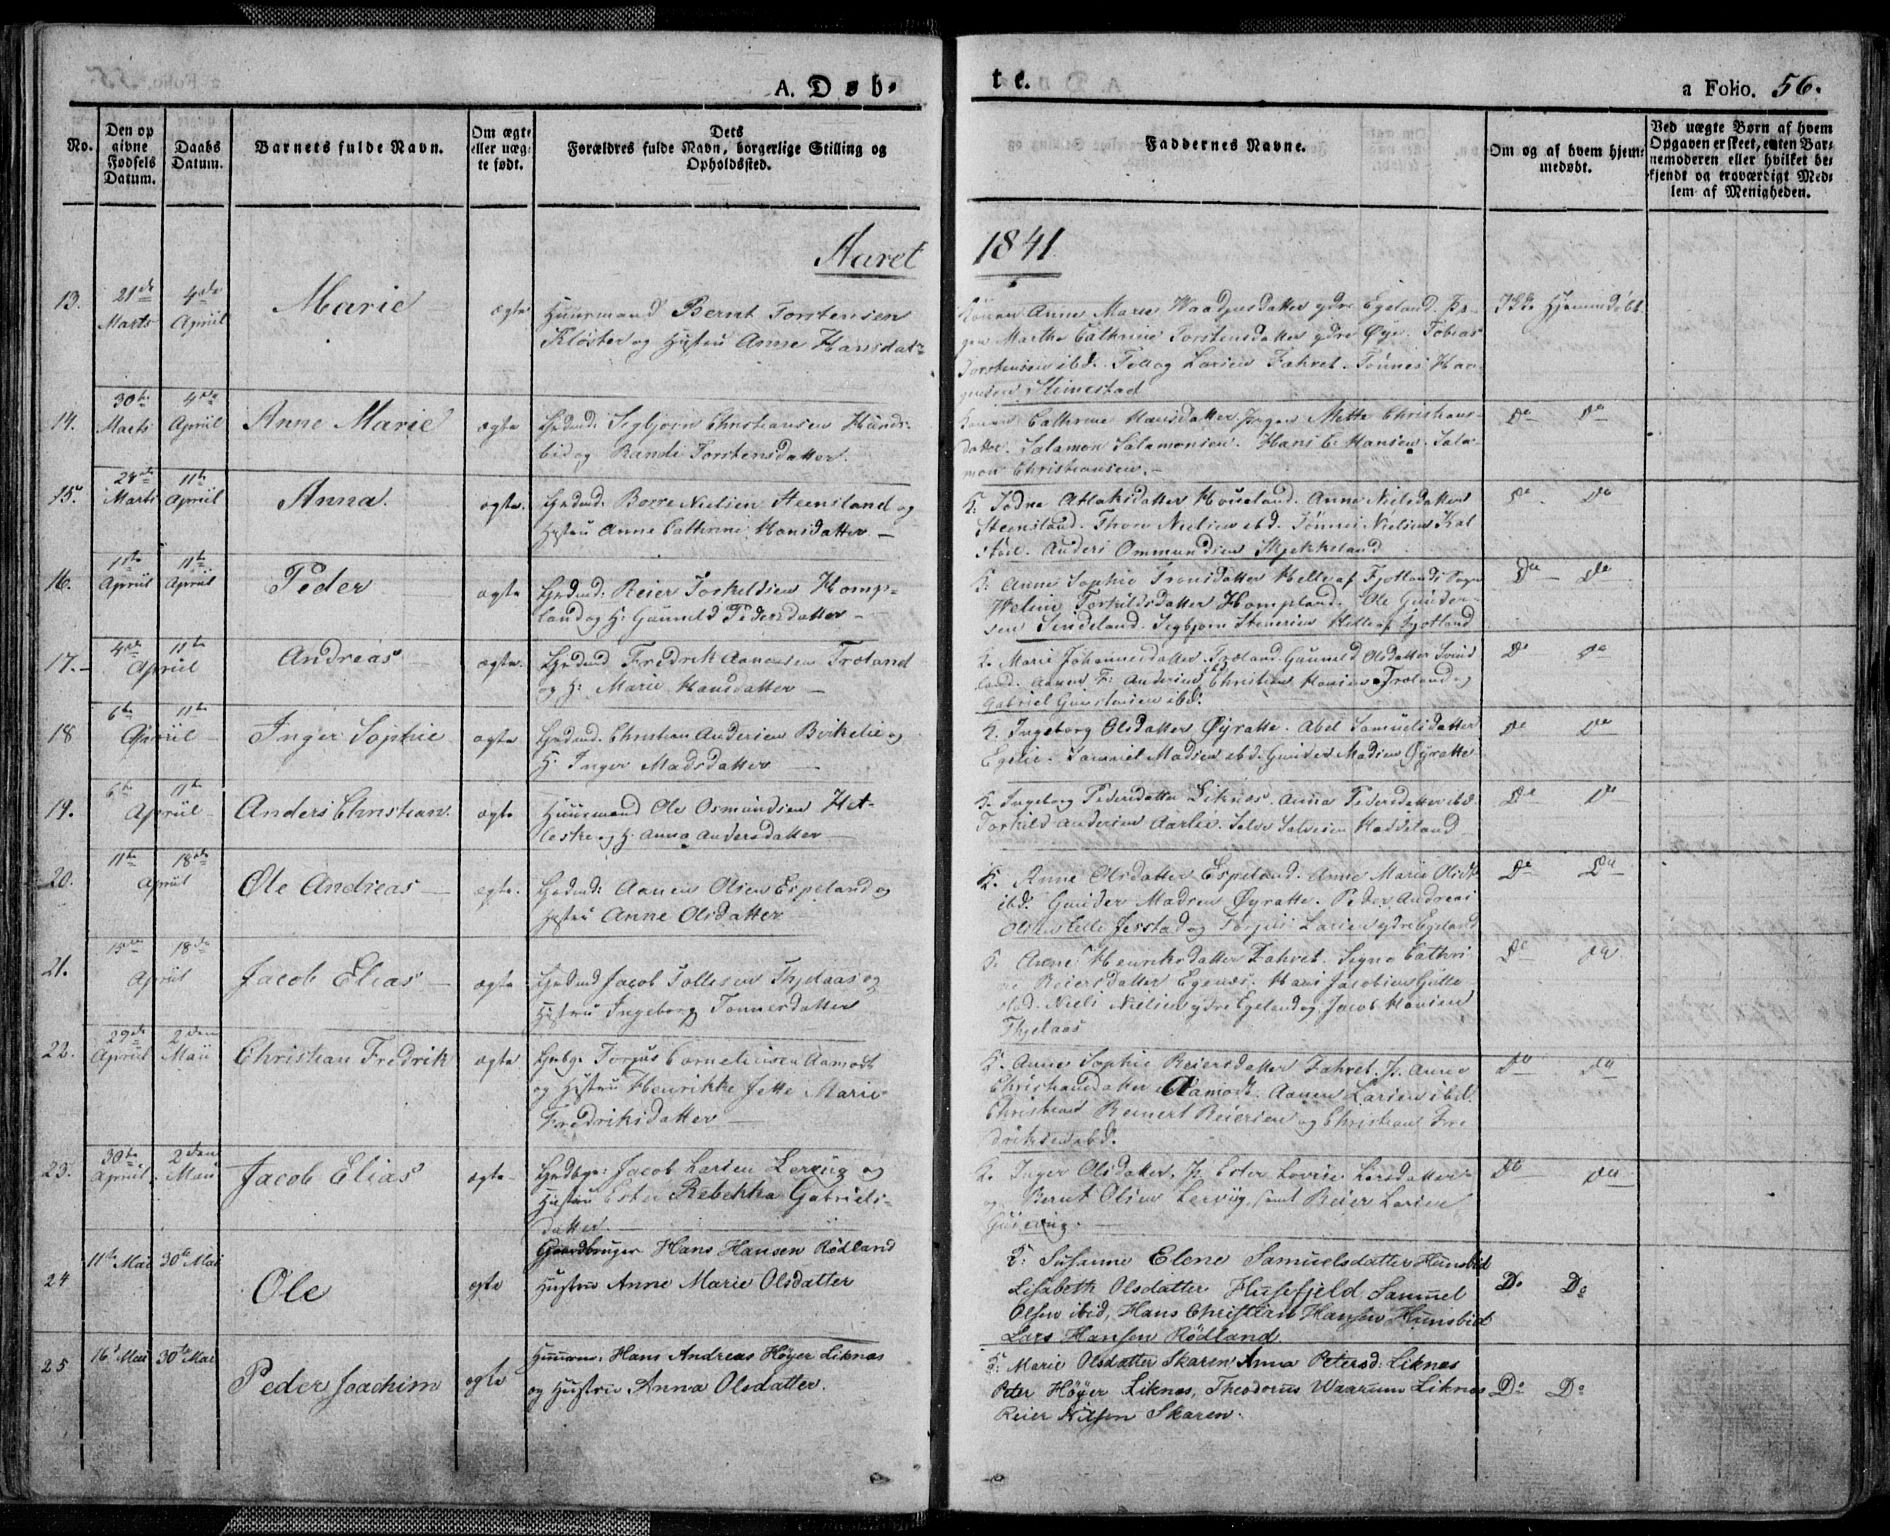 A. Døb-
te.
a Folio. 56.
No.
Den op
givne
Fødsels
Datum.
Daabs
Datum.
Barnets fulde Navn.
Om ægte
eller uæg-
te født.
Dets
Forældres fulde Navn, borgerlige Stilling og
Opholdssted.
Faddernes Navne.
Om og af hvem hjem-
medøbt.
Ved uægte Børn af hvem
Opgaven er skeet, enten Bar-
nemoderen eller hvilket be-
kjendt og troværdigt Med-
lem af Menigheden.
Aaret 1841
13. 21de Marts 4de April Marie ægte
Huusmand Bernt Torstensen
Kloster og Hustru Anne Hansdat-
Konen Anne Marie Waadjusdatter ydre Egeland. Pi-
gen Marthe Cathrine Torstensdatter ydre Øye. Tobias
Torstensen ibd. Tollag Larsen Fahret. Tønnes Haa-
gensen Stimestad
Ikke Hjemmedøbt
14. 30te Marts 4de April Anne Marie ægte
Grdmd. Segbjorn Christiansen Hunds-
bid og Randi Torstensdatter
Konen Cathrine Hansdatter, Pigen Mette Christians-
datter. Salamon Salamonsen. Hans C. Hansen. Sala-
mon Christiansen.
Do Do
15. 28de Marts 11te April Anna ægte
Grdmd. Børre Nielsen Steensland og
Hustru Anne Cathrine Hansdatter
K. Jødne Atlaksdatter Houeland. Anne Nielsdatter
Steensland. Thore Nielsen ibd. Tønnes Nielsen Kal-
støl. Anders Ommundsen Skjekkeland
Do Do
16. 1te April 11te April Peder ægte
Grdmd. Reier Torkeldsen Homp-
land og H. Gunneld Pedersdatter
K. Anne Sophie Tronsdatter Helle af Fjotlands Sogn
Weline Torkildsdatter Hompland. Ole Gunder-
sen Sindeland. Segbjorn Stenersen Helle af Fjotland
Do Do
17. 4de 11te April Andreas ægte
Grdmd Fredrik Aanensen Træland
og H. Marie Hansdatter
K. Marie Johannesdatter Træland. Gunneld Olsdatter Svind-
land. Aanen F. Andersen ibd. Christian Hansen Træland og
Gabriel Gunstensen ibd.
Do Do
18 6te 11te April Inger Sophie ægte
Grdmd. Christian Andersen Birkelie og
H. Inger Madsdatter
K. Ingeborg Olsdatter Øyratte. Abel Samuelsdatter
Egelie. Samuel Madsen ibd. Gunder Madsen Øyratte
Do Do
19. 6te 11te April Anders Christian ægte
Huusmand Ole Osmundsen Het-
leske og H. Anna Andersdatter
K. Ingeborg Pedersdatter Liknes. Anna Pedersdatter ibd.
Torkild Andersen Aarlie. Salve Salvesen Haddeland
Do Do
20. 11te 18de April Ole Andreas ægte
Grdmd. Aanen Olsen Espeland og
Hustru Anne Olsdatter
K. Anne Olsdatter Espeland. Anne Marie Olsdt
ibd. Gunder Madsen Øyratte. Peder Andreas
Olsen Jerstad og Torjus Larsen ydre Egeland
Do Do
21. 15de 18de April Jacob Elias ægte
Grdmd Jacob Tollesen Thjelaas og
Hustru Ingeborg Tønnesdatter
K. Anne Henriksdatter Fahret. Signe Cathri-
ne Reiersdatter Egenes. Hans Jacobsen Gulle-
stad. Niels Nielsen ydre Egeland og Jacob Hansen
Thjelaas
Do Do
22. 29de April 2den Mai Christian Fredrik ægte
Grdbg. Torjus Corneliussen Aamodt
og Hustru Henrikke Jette Marie
Fredriksdatter
K. Anne Sophie Reiersdatter Fahret. P. Anne
Christiansdatter Aamodt. Aanen Larsen ibd.
Christian Reinert Reiersen og Christian Fre-
driksen ibd.
Do Do
23. 30te April 2den Mai Jacob Elias ægte
Grdbgr: Jacob Larsen Lervig og
Hustru Ester Rebekka Gabriels-
datter.
K. Inger Olsdatter. P. Ester Lovise Larsdatter
og Bernt Olsen Lervig, samt Reier Larsen
Do Do
24 11te Mai 30te Mai Ole ægte
Gaardbruger Hans Hansen Rödland
Hustru Anne Marie Olsdatter
F: Susanne Elene Samuelsdatter Hunsbid
Lisabeth Olsdatter Husefjeld Samuel
Olsen ibid, Hans Christian Hansen Hunsbid
Lars Hansen Rödland
Do Do
25 16' Mai 30te Mai Peder Joachim ægte
Huusm: Hans Andreas Höyer Liknæs
og Hustru Anna Olsdatter.
F: Marie Olsdatter Skaren, Anna Petersd: Liknæs
Peter Höyer Liknæs, Theodorus Waarum Liknæs
Reier Nilsen Skaren.
Do Do